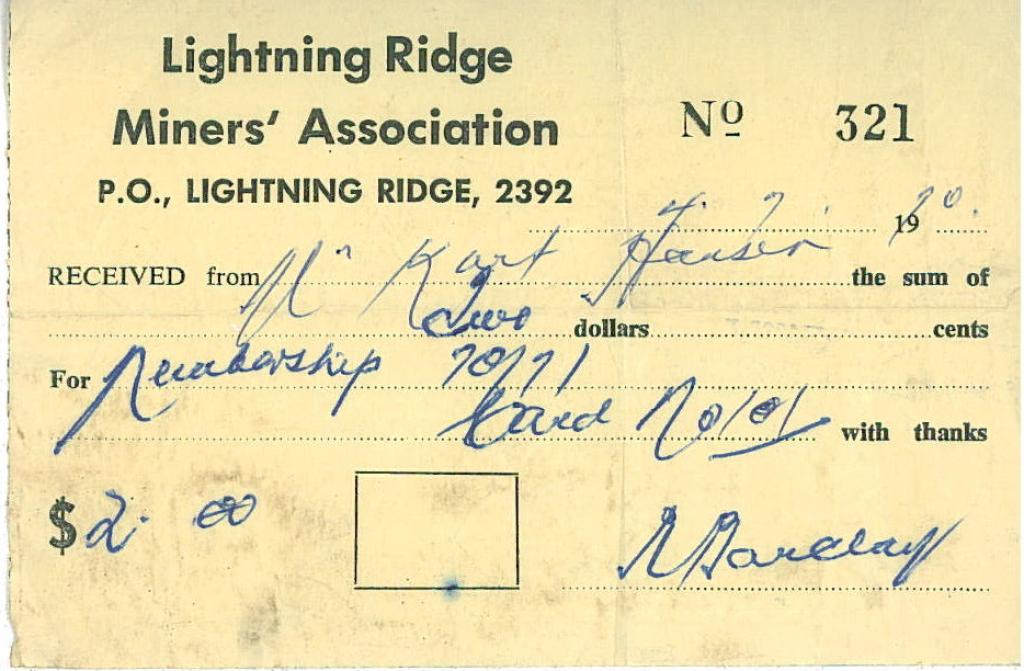 Lightning Ridge
Miners' Association
Nº 321
P.O., LIGHTNING RIDGE, 2392
4. 7. 1970.
RECEIVED from Mr Kurt Hansen the sum of
Two dollars cents
For Membership 70/71
Card No 101 with thanks
$ 2. 00
Barclay